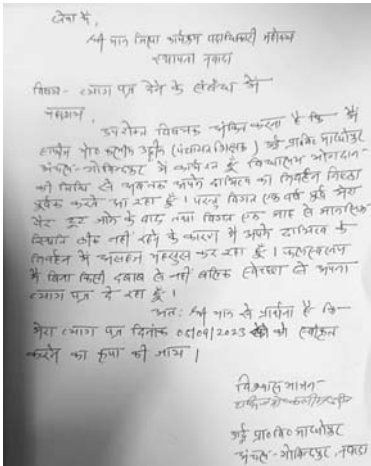 सेवा में,
श्री मान जिला कार्यक्रम पदाधिकारी महोदय
स्थापना नवादा
विषय- त्याग पत्र देने के संबंध में
महाशय,
उपरोक्त विषयक अंकित करना है कि मैं
मो० कलीम उद्दीन (पंचायत शिक्षक) उर्दू प्रा०वि० माधोपुर
अंचल-गोविन्दपुर में कार्यरत हूँ विद्यालय योगदान-
की तिथि से अबतक अपने दायित्व का निर्वहन निष्ठा
पूर्वक करते आ रहा हूँ। परन्तु विगत एक वर्ष पूर्व मेरा
पैर टूट जाने के बाद तथा विगत एक माह से मानसिक
स्थिति ठीक नहीं रहने के कारण मैं अपने दायित्व के
निर्वहन में असहज महसुस कर रहा हूँ। फलस्वरूप
मैं बिना किसी दबाब से नहीं बल्कि स्वेच्छा से अपना
त्याग पत्र दे रहा हूँ।
अतः श्री मान से प्रार्थना है कि-
मेरा त्याग पत्र दिनांक 05/09/2023 को स्वीकृत
करने का कृपा की जाय।
विश्वास भाजन-
उर्दू प्रा०वि० माधोपुर
अंचल-गोविन्दपुर, नवादा